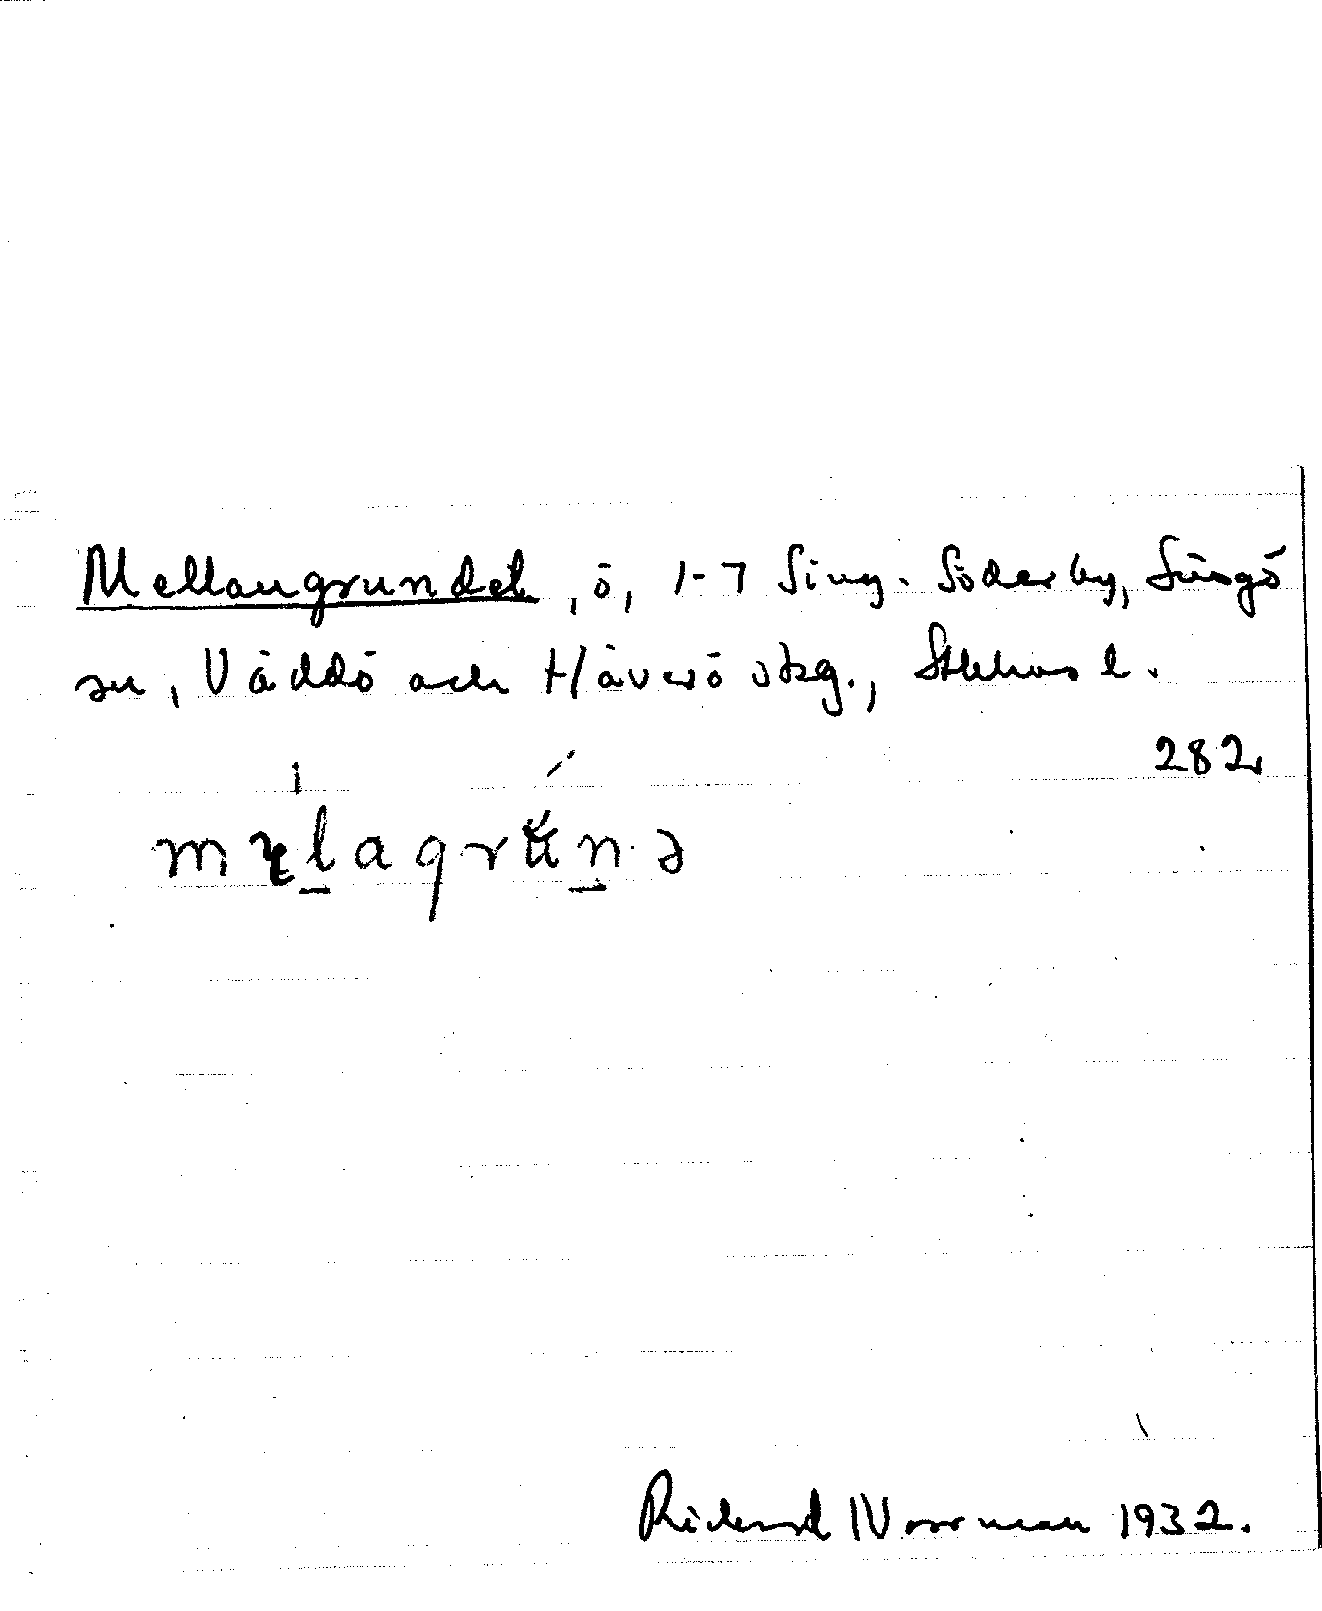 Mellangrundet, ö, 1-7 Sing. Söderby, Singö
sn, Väddö och Häverö skg., Sthlms l.
282.
Richard Norrman 1932.